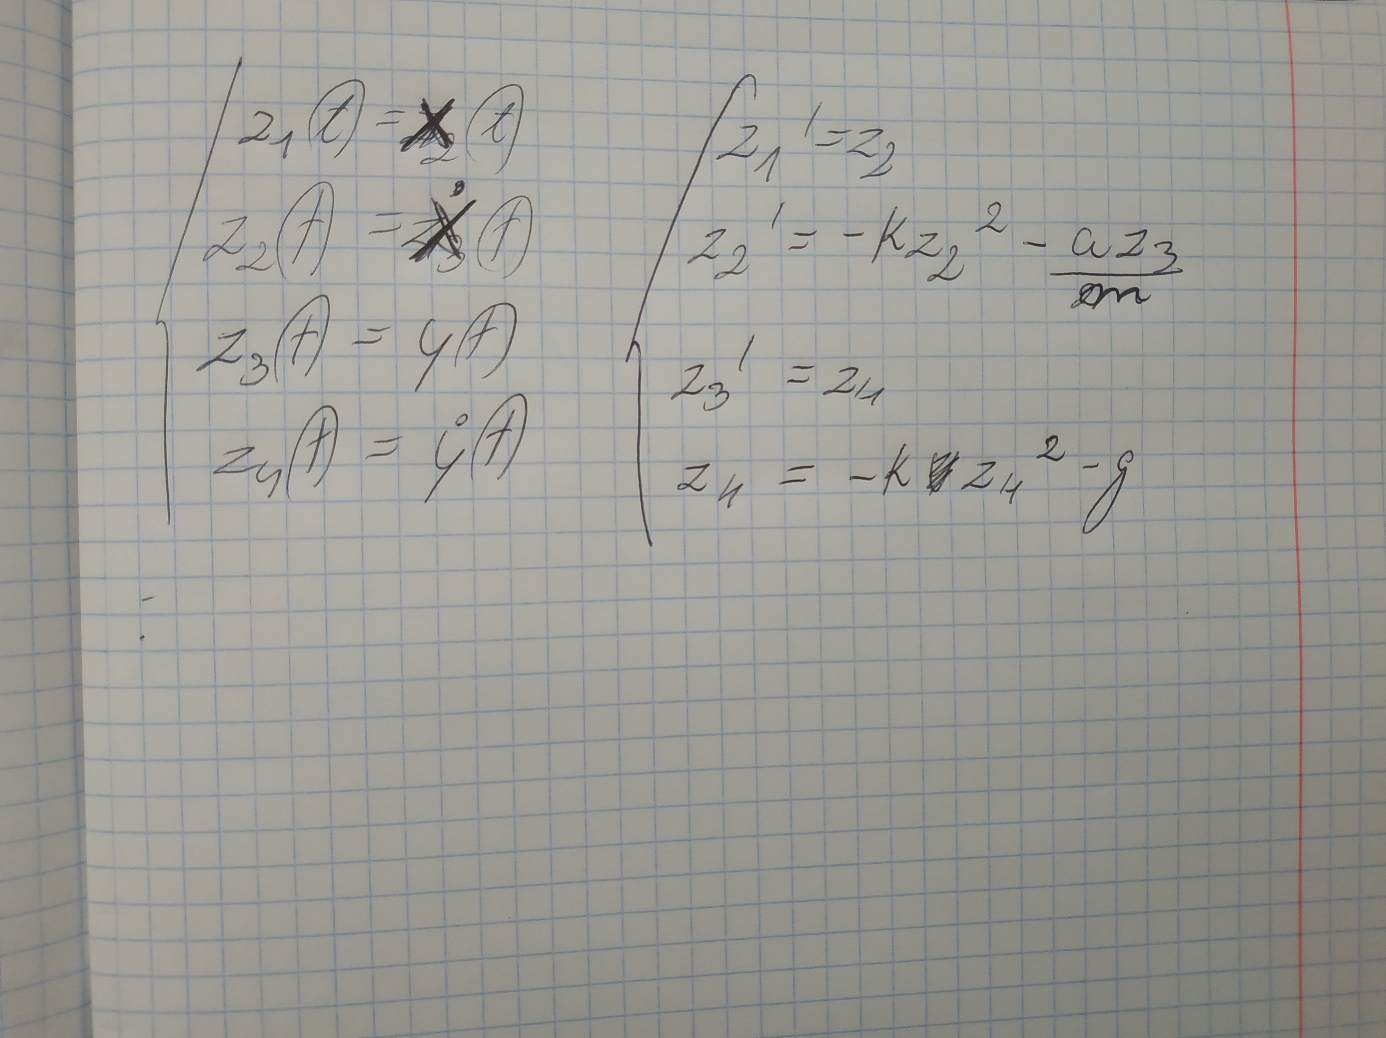 z₁(t) = x(t)
z₂(t) = ẋ(t)
z₃(t) = y(t)
z₄(t) = ẏ(t)
z₁' = z₂
z₂' = -kz₂² - az₃/m
z₃' = z₄
z₄ = -kz₄² - g